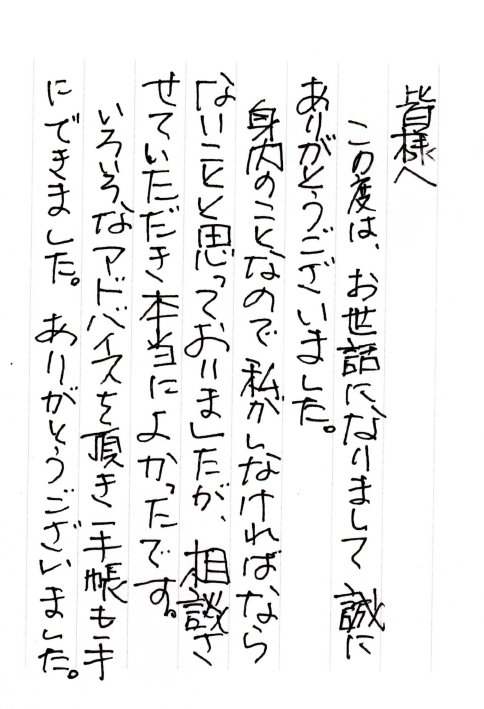 皆様へ
この度は、お世話になりまして 誠に
ありがとうございました。
身内のことなので 私がしなければなら
ないことと思っておりましたが、相談さ
せていただき本当によかったです。
いろいろなアドバイスを頂き 手帳も手
にできました。ありがとうございました。